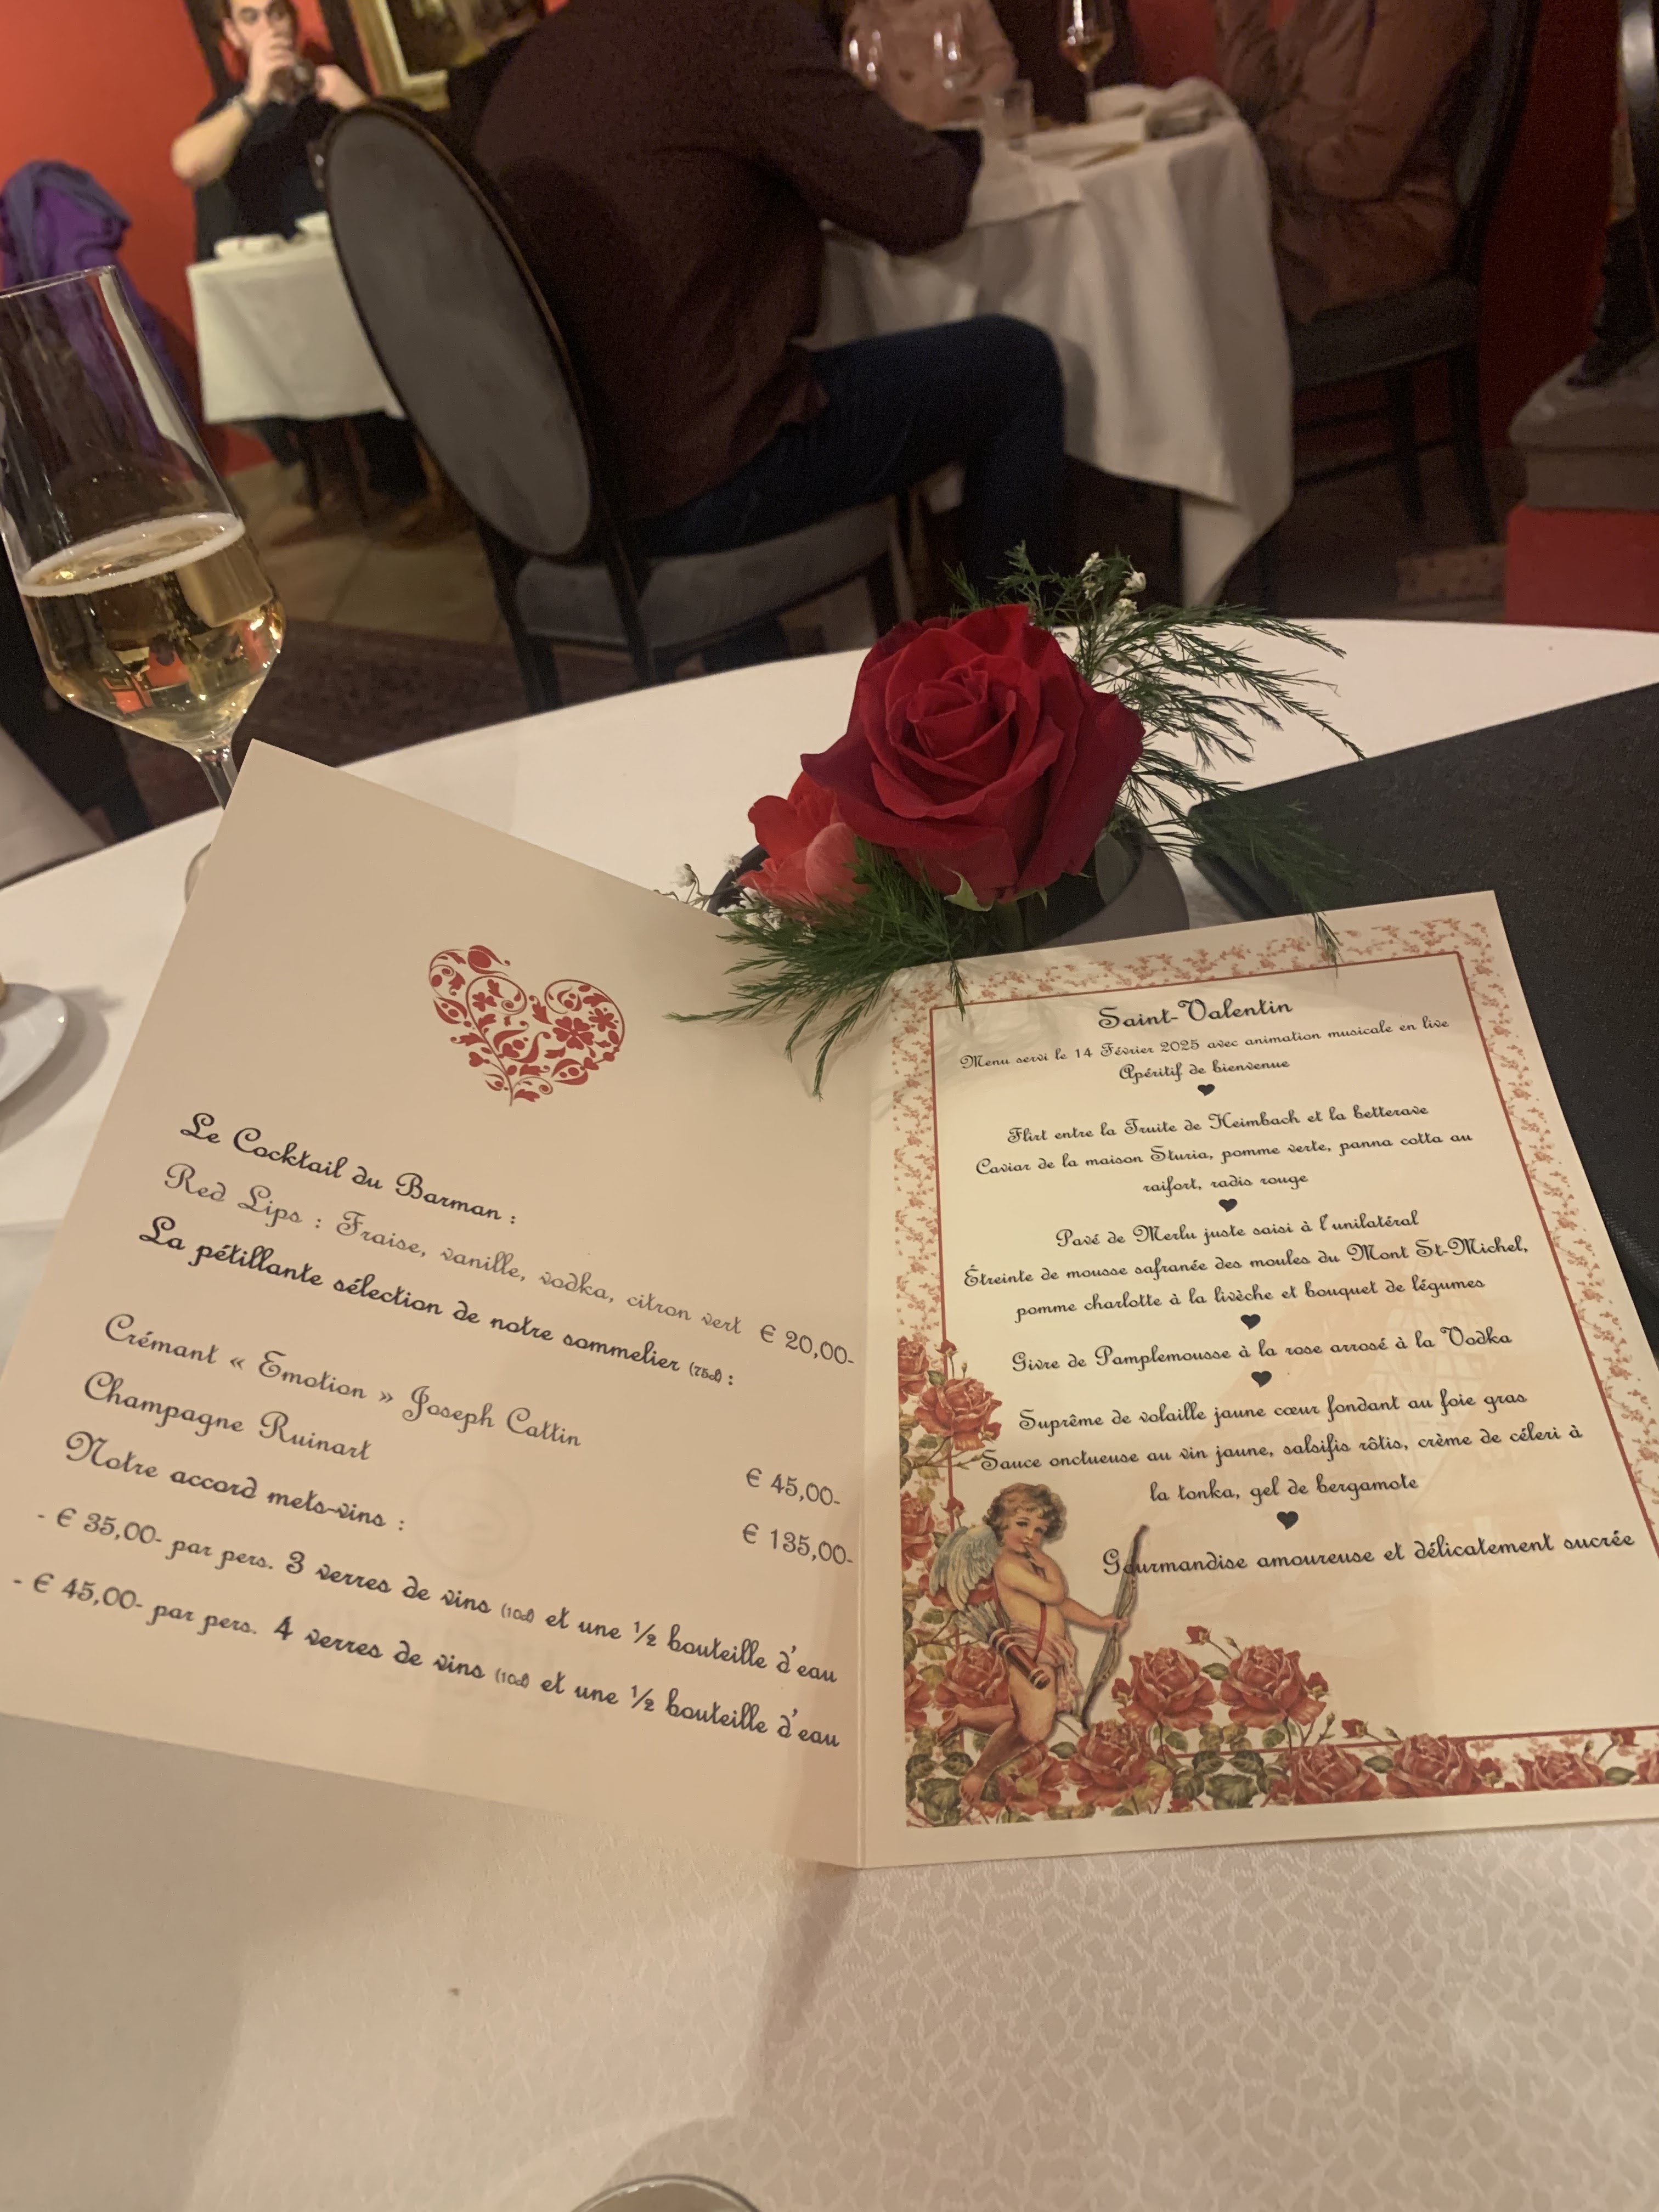 Le Cocktail du Barman :
Red Lips : Fraise, vanille, vodka, citron vert € 20,00-
La pétillante sélection de notre sommelier (75cl) :
Crémant « Emotion » Joseph Cattin € 45,00-
Champagne Ruinart € 135,00-
Notre accord mets-vins :
- € 35,00- par pers. 3 verres de vins (10cl) et une ½ bouteille d'eau
- € 45,00- par pers. 4 verres de vins (10cl) et une ½ bouteille d'eau
Saint-Valentin
Menu servi le 14 Février 2025 avec animation musicale en live
Apéritif de bienvenue
Flirt entre la Truite de Heimbach et la betterave
Caviar de la maison Sturia, pomme verte, panna cotta au
raifort, radis rouge
Pavé de Merlu juste saisi à l'unilatéral
Étreinte de mousse safranée des moules du Mont St-Michel,
pomme charlotte à la livèche et bouquet de légumes
Givre de Pamplemousse à la rose arrosé à la Vodka
Suprême de volaille jaune cœur fondant au foie gras
Sauce onctueuse au vin jaune, salsifis rôtis, crème de céleri à
la tonka, gel de bergamote
Gourmandise amoureuse et délicatement sucrée